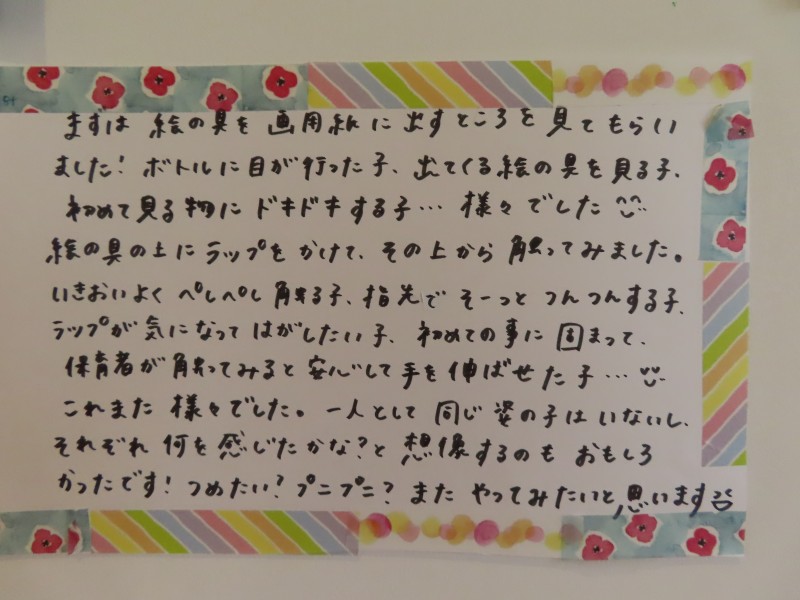 まずは 絵の具を 画用紙に 出すところを 見てもらい
ました! ボトルに目が行った子、出てくる絵の具を見る子、
初めて見る物に ドキドキする子… 様々でした
絵の具の上に ラップを かけて、その上から 触ってみました。
いきおいよく ペしペし 触る子、指先で そーっと つんつんする子、
ラップが 気になって はがしたい子、初めての事に 固まって、
保育者が 触ってみると 安心して 手を 伸ばせた子…
これまた 様々でした。一人として 同じ 姿の子は いないし、
それぞれ 何を 感じたかな?と 想像するのも おもしろ
かったです! つめたい? プニプニ? また やってみたいと 思います